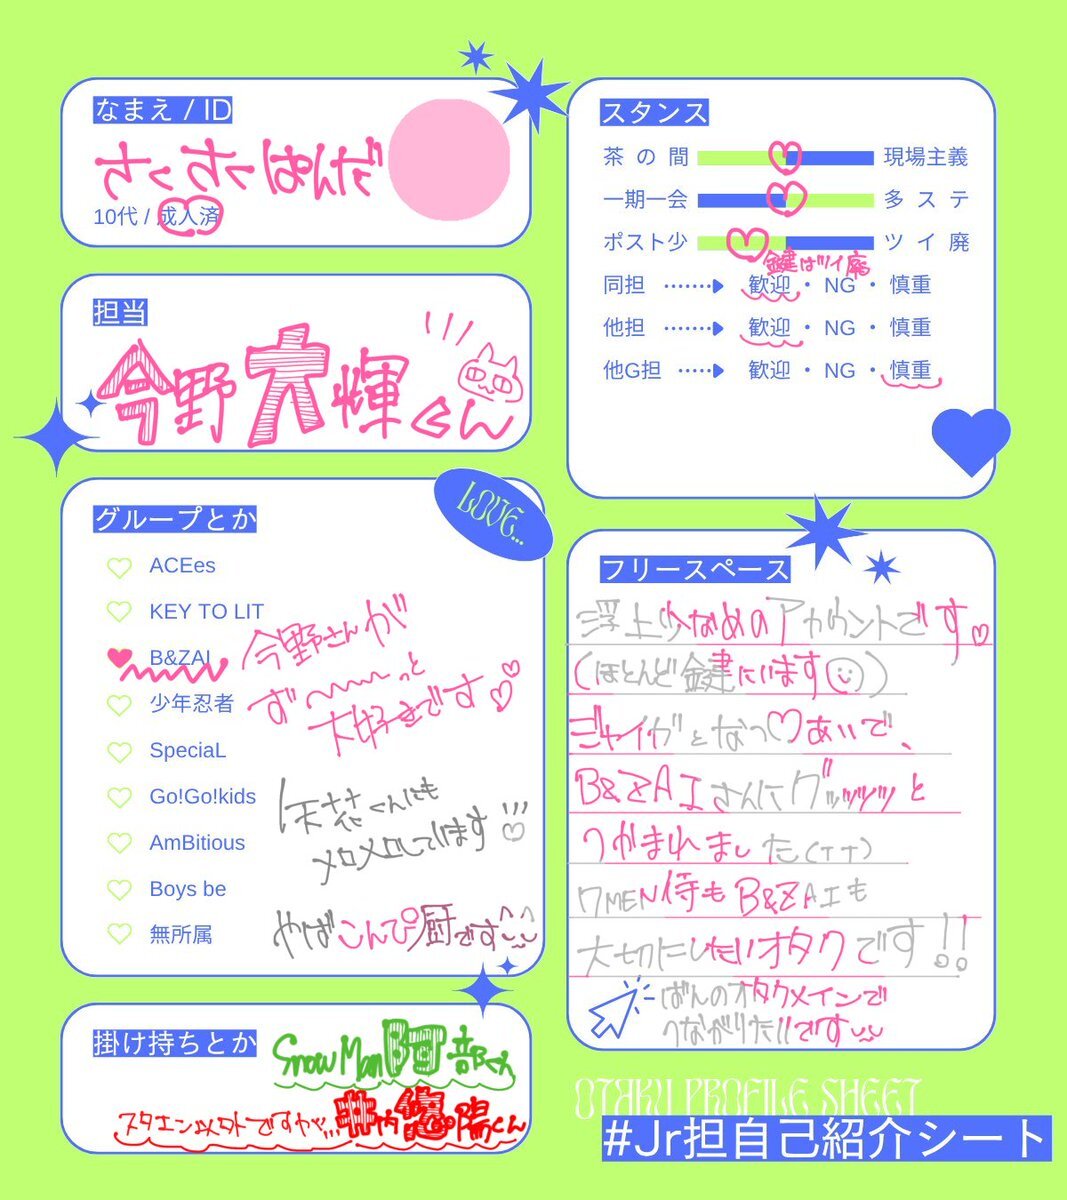 なまえ / ID
さくさくぱんだ
10代 / 成人済
担当
今野大輝くん
グループとか
LOVE...
ACEes
KEY TO LIT
B&ZAI
少年忍者
SpeciaL
Go!Go!kids
AmBitious
Boys be
無所属
今野さんが
ず〜〜〜っと
大好きです♡♡
くんにも
メロメロしています
やばこんぴ厨です
掛け持ちとか
Snow Man 阿部くん
スタエン以外ですが… 井内悠陽くん
スタンス
茶の間 現場主義
一期一会 多ステ
ポスト少 ツイ廃
鍵はツイ廃
同担 歓迎・NG・慎重
他担 歓迎・NG・慎重
他G担 歓迎・NG・慎重
フリースペース
浮上少なめのアカウントです♡
(ほとんど鍵にいます☺)
ジャイガとなつ♡あいで、
B&ZAIさんにグッッッッと
つかまれました(TT)
7MEN侍もB&ZAIも
大切にしたいオタクです!!
ばんのオタクメインで
つながりたいです
OTAKU PROFILE SHEET
#Jr担自己紹介シート